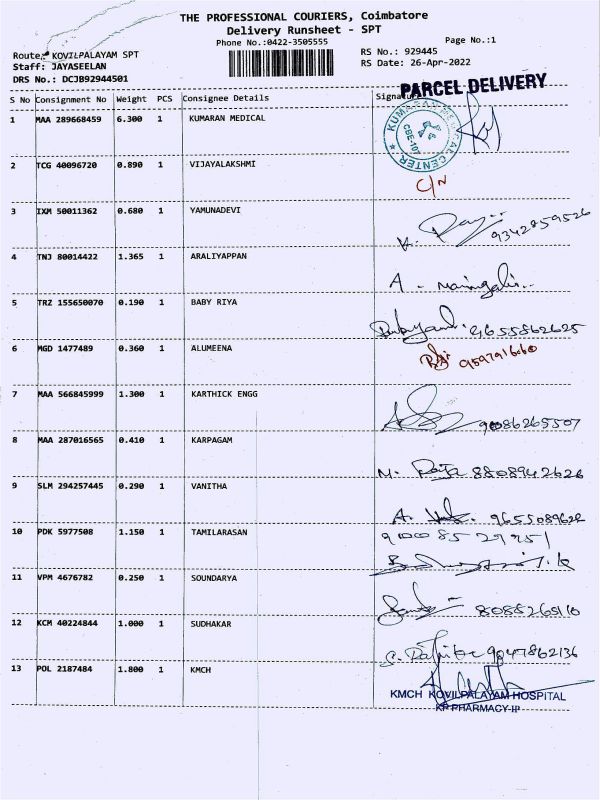 THE PROFESSIONAL COURIERS, Coimbatore
Delivery Runsheet - SPT
Phone No.:0422-3505555
Page No.:1
Route: KOVILPALAYAM SPT
RS No.: 929445
Staff: JAYASEELAN
RS Date: 26-Apr-2022
DRS No.: DCJB92944501
PARCEL DELIVERY
S No Consignment No Weight PCS Consignee Details Signature
1 MAA 289668459 6.300 1 KUMARAN MEDICAL
KUMARAN MEDICAL CENTER
CBE-107
2 TCG 40096720 0.890 1 VIJAYALAKSHMI
C/N
3 IXM 50011362 0.680 1 YAMUNADEVI
9342859526
4 TNJ 80014422 1.365 1 ARALIYAPPAN
A.
5 TRZ 155650070 0.190 1 BABY RIYA
9655862625
6 MGD 1477489 0.360 1 ALUMEENA
7 MAA 566845999 1.300 1 KARTHICK ENGG
9086265507
8 MAA 287016565 0.410 1 KARPAGAM
M. Raja 8808942626
9 SLM 294257445 0.290 1 VANITHA
A. 9655089622
10 PDK 5977508 1.150 1 TAMILARASAN
11 VPM 4676782 0.250 1 SOUNDARYA
12 KCM 40224844 1.000 1 SUDHAKAR
9047862136
13 POL 2187484 1.800 1 KMCH
KMCH KOVILPALAYAM HOSPITAL
KP PHARMACY-IP